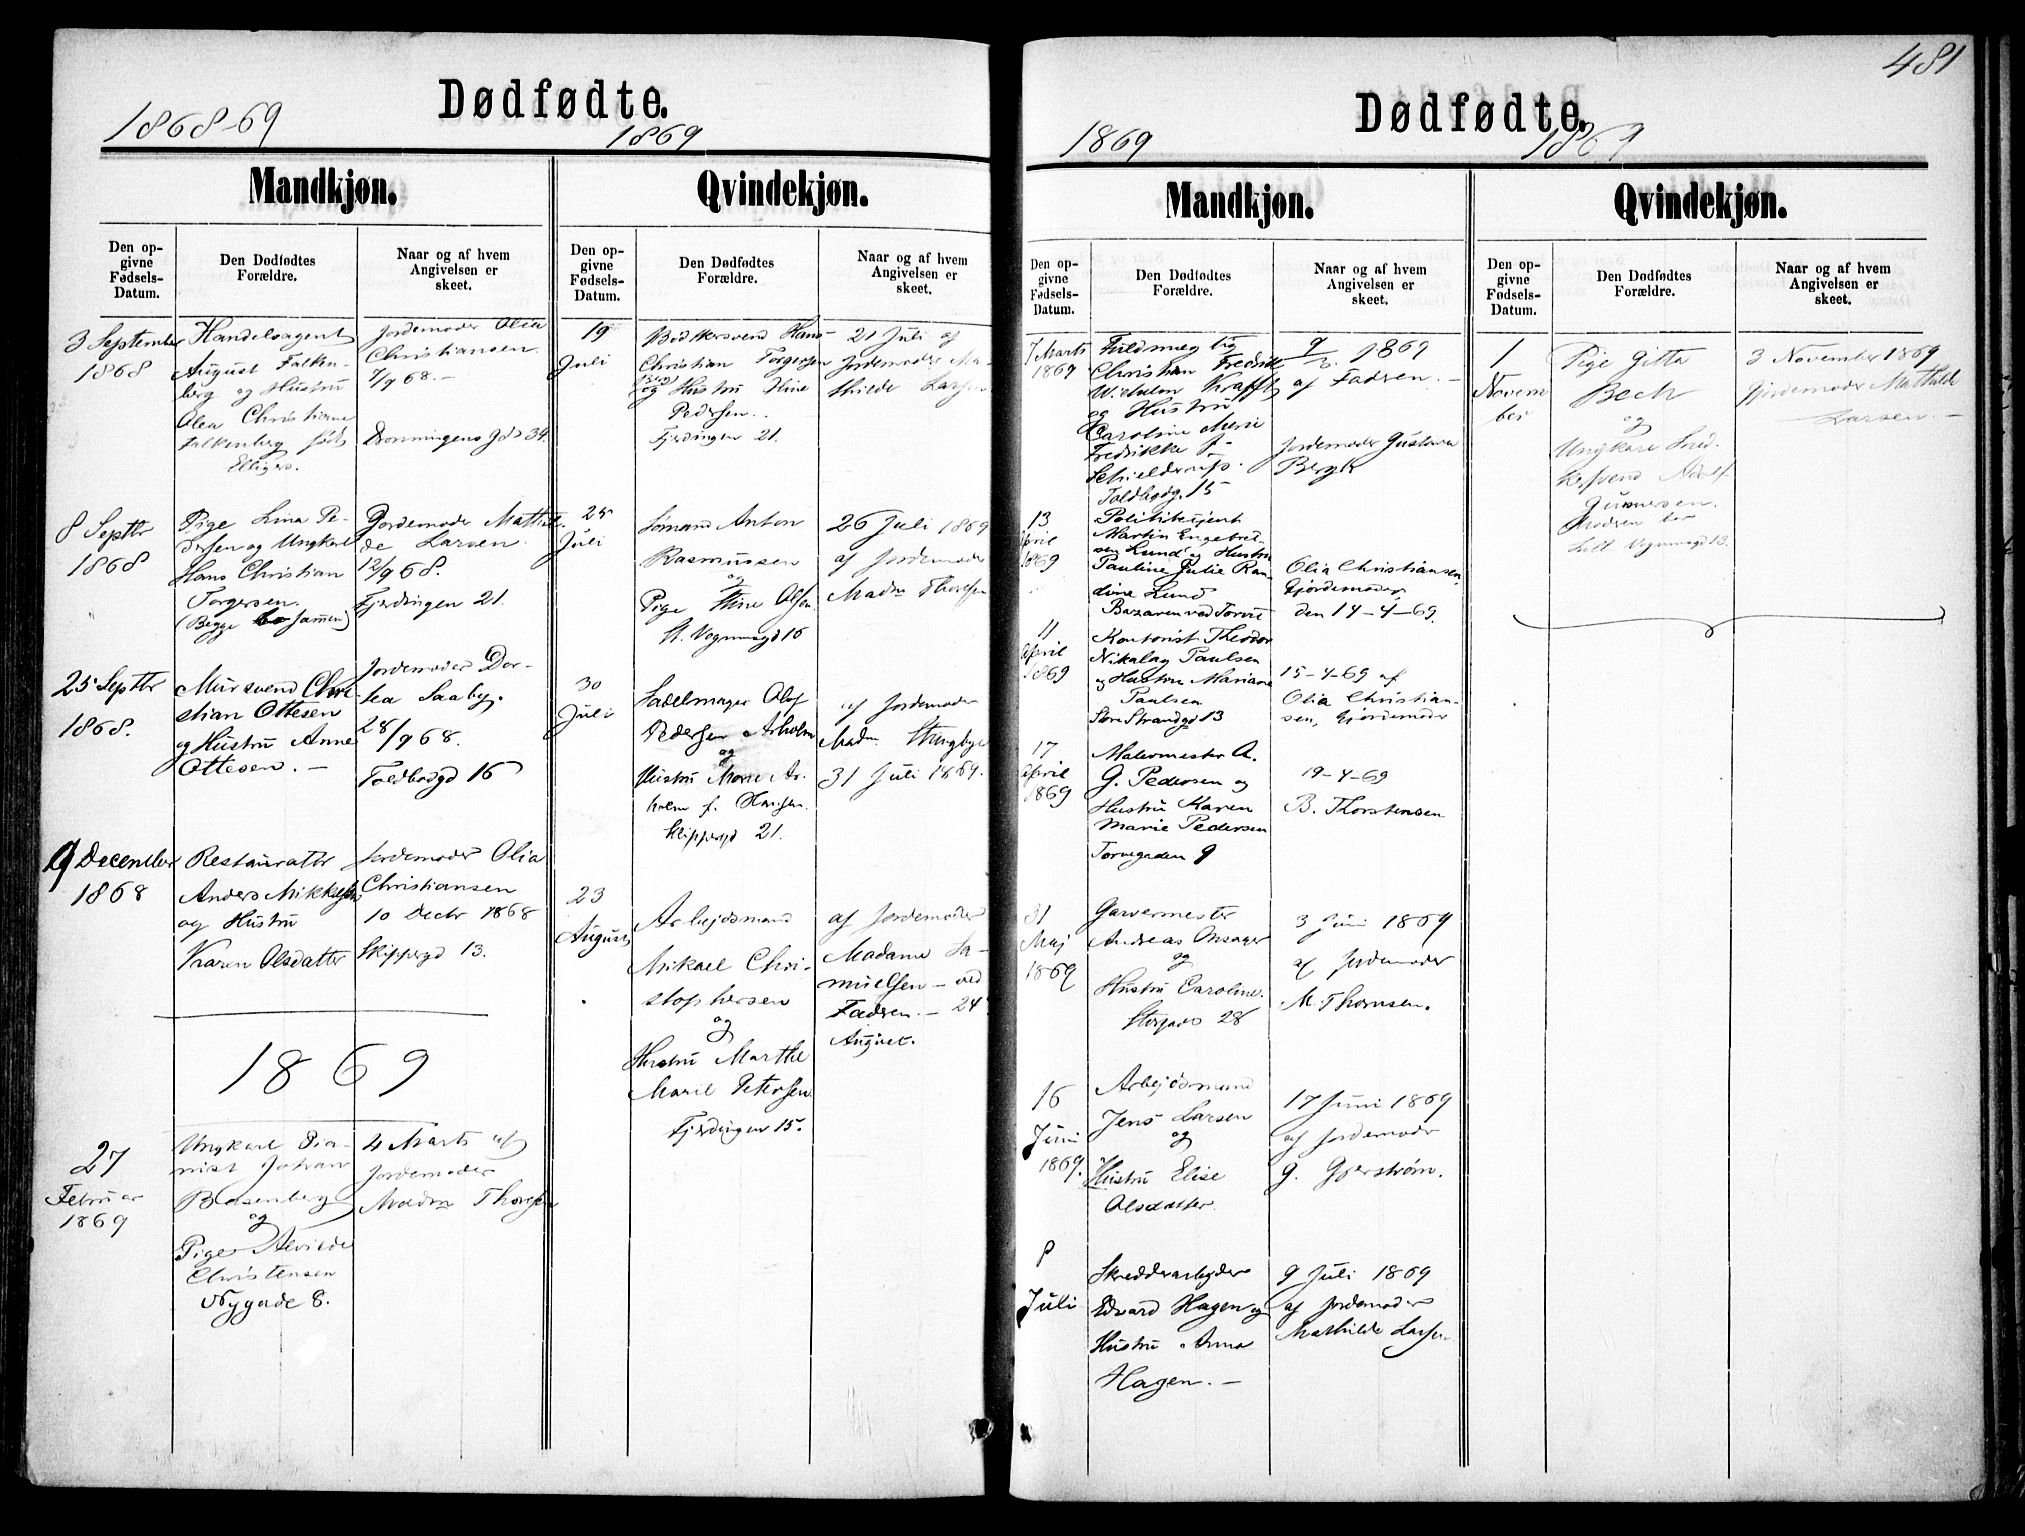 1868-69
Dødfødte.
1869
Mandkjøn.
Den op-
givne
Fødsels-
Datum.
Den Dødfødtes
Forældre.
Naar og af hvem
Angivelsen er
skeet.
3 September
1868
Handelsagent
August Falken-
berg og Hustru
Olea Christiane
Falkenberg født
Jordemoder Olia
Christiansen
7/9 68.-
Dronningens gd 34.
8 Septbr
1868
Pige Lina Pe-
dersen og Ungkarl
Hans Christian
Torgersen.
(Begge bo sammen)
Gjordemoder Mathil-
de Larsen.
12/9 68.
Fjerdingen 21.
25 Septbr
1868.
Mursvend Chri-
stian Ottesen
og Hustru Anne
Ottesen. -
Jordemoder Dor-
tea Saaby.
28/9 68.
Toldbodgd 16
9 December
1868
Restauratør
Anders Mikkelsen
og Hustru
Karen Olsdatter
Jordemoder Olia
Christiansen
10 Decbr 1868
Skippergd 13.
1869
27
Februar
1869
Ungkarl Pia-
nist Johan
Basenberg
og
Pige Alvilde
Christensen
Nygade 8.
4 Marts af
Jordemoder
Madm Thoresen
Qvindekjøn.
Den op-
givne
Fødsels-
Datum.
Den Dødfødtes
Forældre.
Naar og af hvem
Angivelsen er
skeet.
19
Juli
Bødkersvend Hans
Christian Torgersen
og Hustru Stine
Pedersen.
Fjerdingen 21.
21 Juli af
Jordemoder Ma-
thilde Larsen
25
Juli
Sømand Anton
Rasmussen
og
Pige Stine Olsen
St. Vognmagd 16
26 Juli 1869
af Jordemoder
Madm Thoresen
30
Juli
Sadelmager Olof
Pedersen Arholm
og
Hustru Marie Ar-
holm f. Hansen
Skippergd 21.
af Jordemoder
Madm. Stngbye
31 Juli 1869.
23
August
Arbejdsmand
Mikael Chri-
stophersen
og
Hustru Marthe
Marie Petersen
Fjerdingen 15.
af Jordemoder
Madame Sa-
muelsen - ved
Fadren. - 24
August.
481
Dødfødte.
1869
1869
Mandkjøn.
Den op-
givne
Fødsels-
Datum.
Den Dødfødtes
Forældre.
Naar og af hvem
Angivelsen er
skeet.
7 Marts
1869
Fuldmægtig
Christian Fredrik
Wilhelm Krafft
og Hustru
Caroline Marie
Fredrikke f.
Schielderup.
Toldbodg. 15
9/3 1869
af Fadren. -
Jordemoder Gustava
Bergh
13
April
1869
Politibetjent
Martin Engebret-
sen Lund og Hustru
Pauline Julie Ran-
dine Lund
Bazaren ved Torvet
Olia Christiansen,
Gjordemoder,
den 14-4-69.
11
April
1869
Kontorist Theodor
Nikolay Paulsen
og Hustru Mariane
Paulsen
Store Strandgd 13
15-4-69 af
Olia Christian-
sen, Gjordemoder
17
April
1869
Malermester A.
G. Pedersen og
Hustru Karen
Marie Pedersen
Torvegaden 9
19-4-69
B. Thorstensen
31
Maj
1869
Garvermester
Andreas Onsager
og
Hustru Caroline.
Storgade 28
3 Juni 1869
af Jordemoder
M. Thoresen.
16
Juni
1869.
Arbejdsmand
Jens Larsen
og
Hustru Elise
Olsdatter.
17 Juni 1869
af Jordemoder
G. Gjerstrøm.
8
Juli
Skredderarbejder
Edvard Hagen og
Hustru Anna
Hagen. -
9 Juli 1869
af Jordemoder
Mathilde Larsen
Qvindekjøn.
Den op-
givne
Fødsels-
Datum.
Den Dødfødtes
Forældre.
Naar og af hvem
Angivelsen er
skeet.
1
Novem
ber
Pige Gitta
Bech
og
Ungkarl Sned-
kersvend Adolf
Gunnersen.
Modren bor
Lill Vognmagd 13.
3 November 1869
Gjordemoder Mathilde
Larsen. -